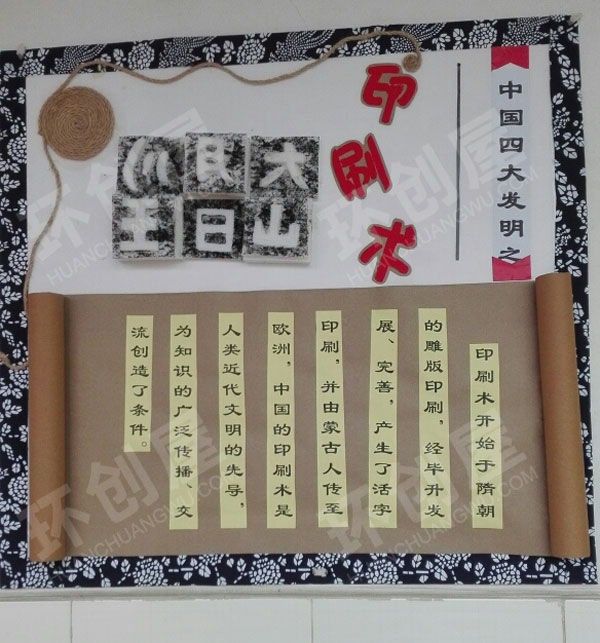 中国四大发明之
印刷术
川月大
王日山
印刷术开始于隋朝
的雕版印刷，经毕升发
展、完善，产生了活字
印刷，并由蒙古人传至
欧洲，中国的印刷术是
人类近代文明的先导，
为知识的广泛传播、交
流创造了条件。
环创屋
HUANCHUANGWU.COM